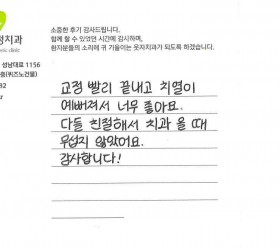 정치과
nic clinic
성남대로 1156
층(위즈노건물)
32
z
소중한 후기 감사드립니다.
함께 할 수 있었던 시간에 감사하며,
환자분들의 소리에 귀 기울이는 웃자치과가 되도록 하겠습니다.
교정 빨리 끝내고 치열이
예뻐져서 너무 좋아요.
다들 친절해서 치과 올 때
무섭지 않았어요.
감사합니다!